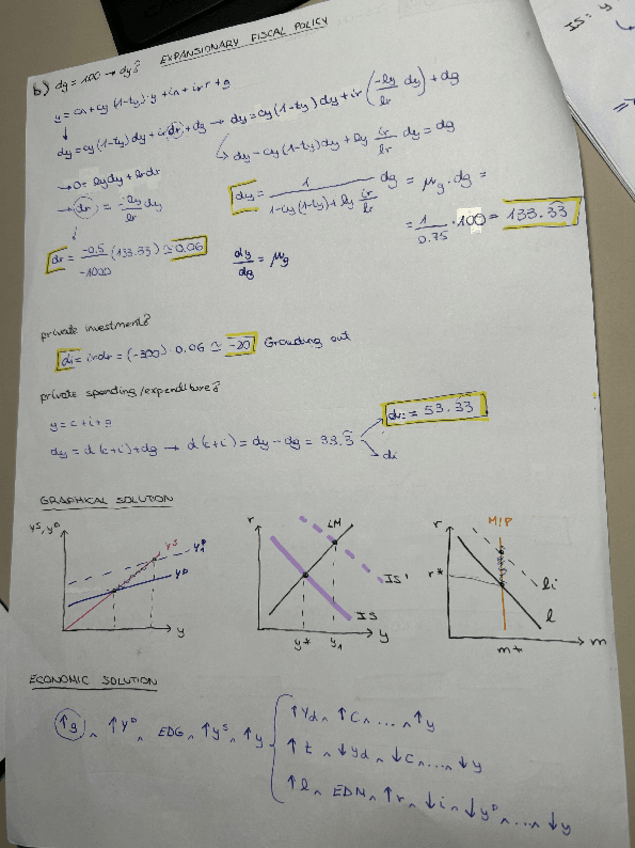 IS: y
b) dg = 100 → dy? EXPANSIONARY FISCAL POLICY
y = ca + cy (1-ty)·y + ia + ir r + g
dy = cy (1-ty) dy + ir dr + dg → dy = cy (1-ty) dy + ir (-ly dy / lr) + dg
→ 0 = ly dy + lr dr
↳ dy - cy (1-ty) dy + ly ir/lr dy = dg
→ dr = -ly/lr dy
dy = 1 / (1-cy (1-ty) + ly ir/lr) dg = μg · dg =
= 1/0.75 · 100 = 133.33
dr = -0.5/-1000 (133.33) ≃ 0.06
dy/dg = μg
private investment?
di = ir dr = (-300) · 0.06 ≃ -20 Crouding out
private spending/expenditure?
y = c + i + g
dy = d(c+i) + dg → d(c+i) = dy - dg = 33.3
di = 53.33
di
GRAPHICAL SOLUTION
yS, yD
yS
yD1
yD
y
r
LM
IS'
IS
y* y1 y
r
M/P
r*
li
l
m*
m
ECONOMIC SOLUTION
↑g ^ ↑yD ^ EDG ^ ↑yS ^ ↑y
↑Yd ^ ↑C ^ .... ^ ↑y
↑t ^ ↓yd ^ ↓C ^ .... ^ ↓y
↑l ^ EDM ^ ↑r ^ ↓i ^ ↓yD ^ ... ^ ↓y